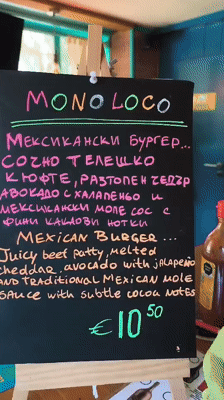 MONO LOCO
МЕКСИКАНСКИ БУРГЕР...
СОЧНО ТЕЛЕШКО
КЮФТЕ, РАЗТОПЕН ЧЕДЪР
АВОКАДО С ХАЛАПЕНЬО И
МЕКСИКАНСКИ МОЛЕ СОС С
ФИНИ КАКАОВИ НОТКИ
MEXICAN BURGER...
Juicy beef patty, melted
cheddar, avocado with jalapeño
AND TRADITIONAL MEXICAN MOLE
SAUCE WITH SUBTLE COCOA NOTES
€10 50